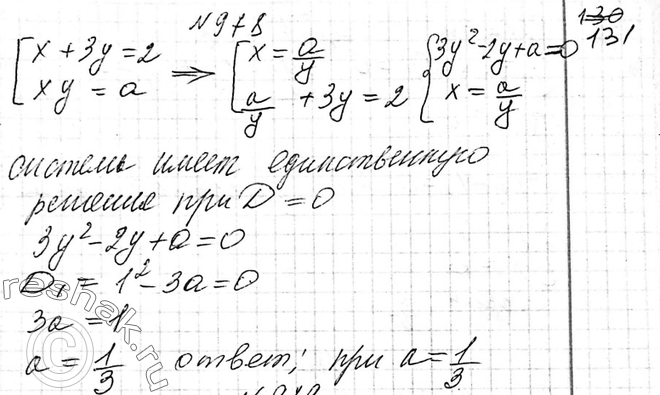 N 978
130
131
[ x + 3y = 2
xy = a ⇒ [ x = a/y
a/y + 3y = 2 { 3y² - 2y + a = 0
x = a/y
системы имеет единственную
решение при D = 0
3y² - 2y + a = 0
D₁ = 1² - 3a = 0
3a = 1
a = 1/3 ответ; при a = 1/3
reshak.ru